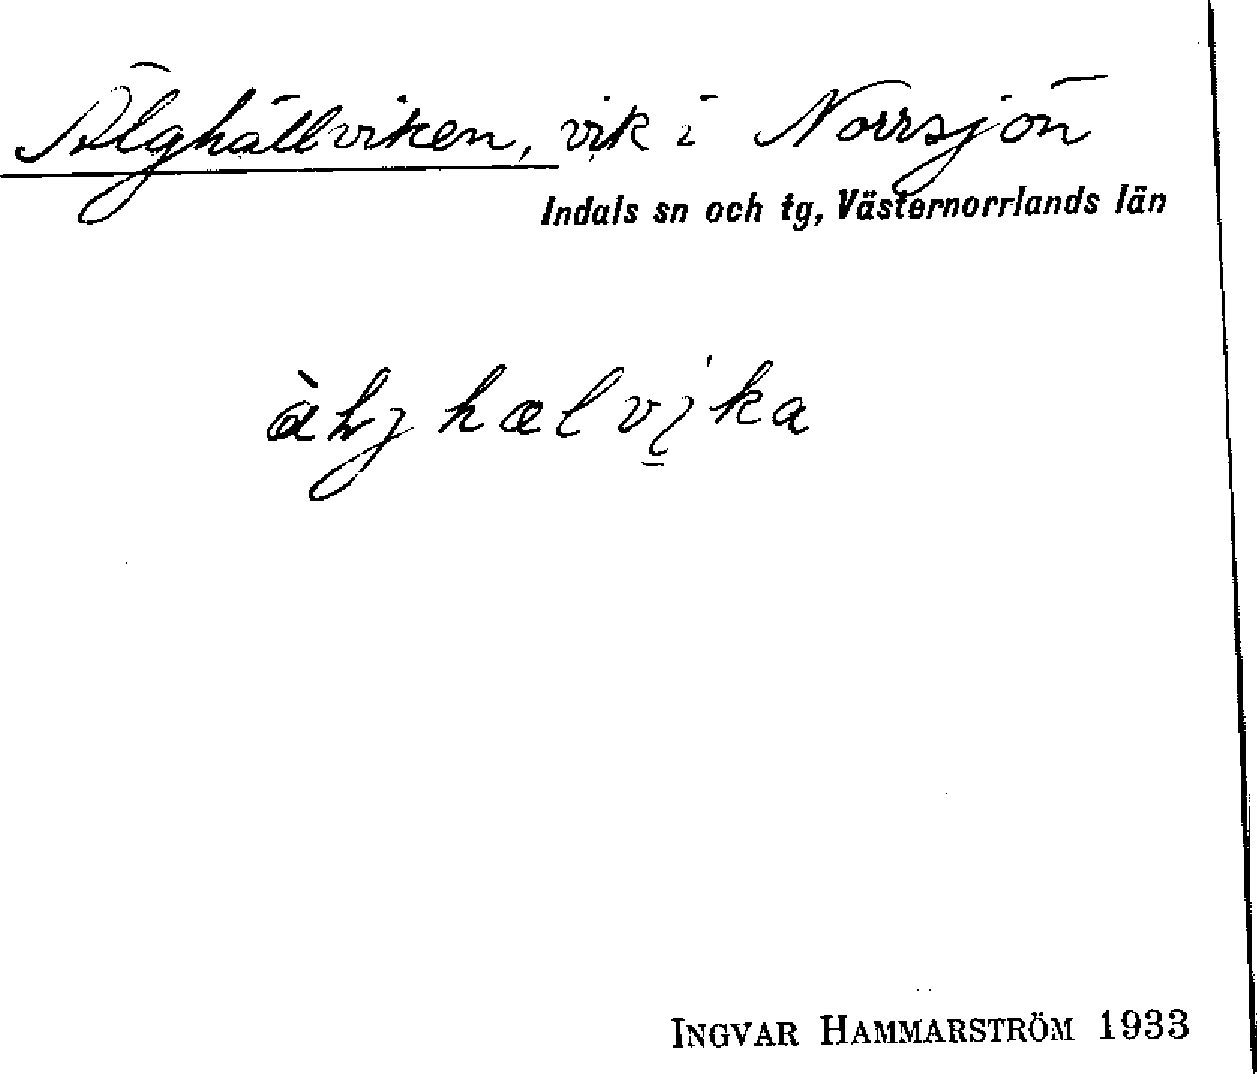 Älghällviken, vik i Norrsjön
Indals sn och tg, Västernorrlands län
INGVAR HAMMARSTRÖM 1933